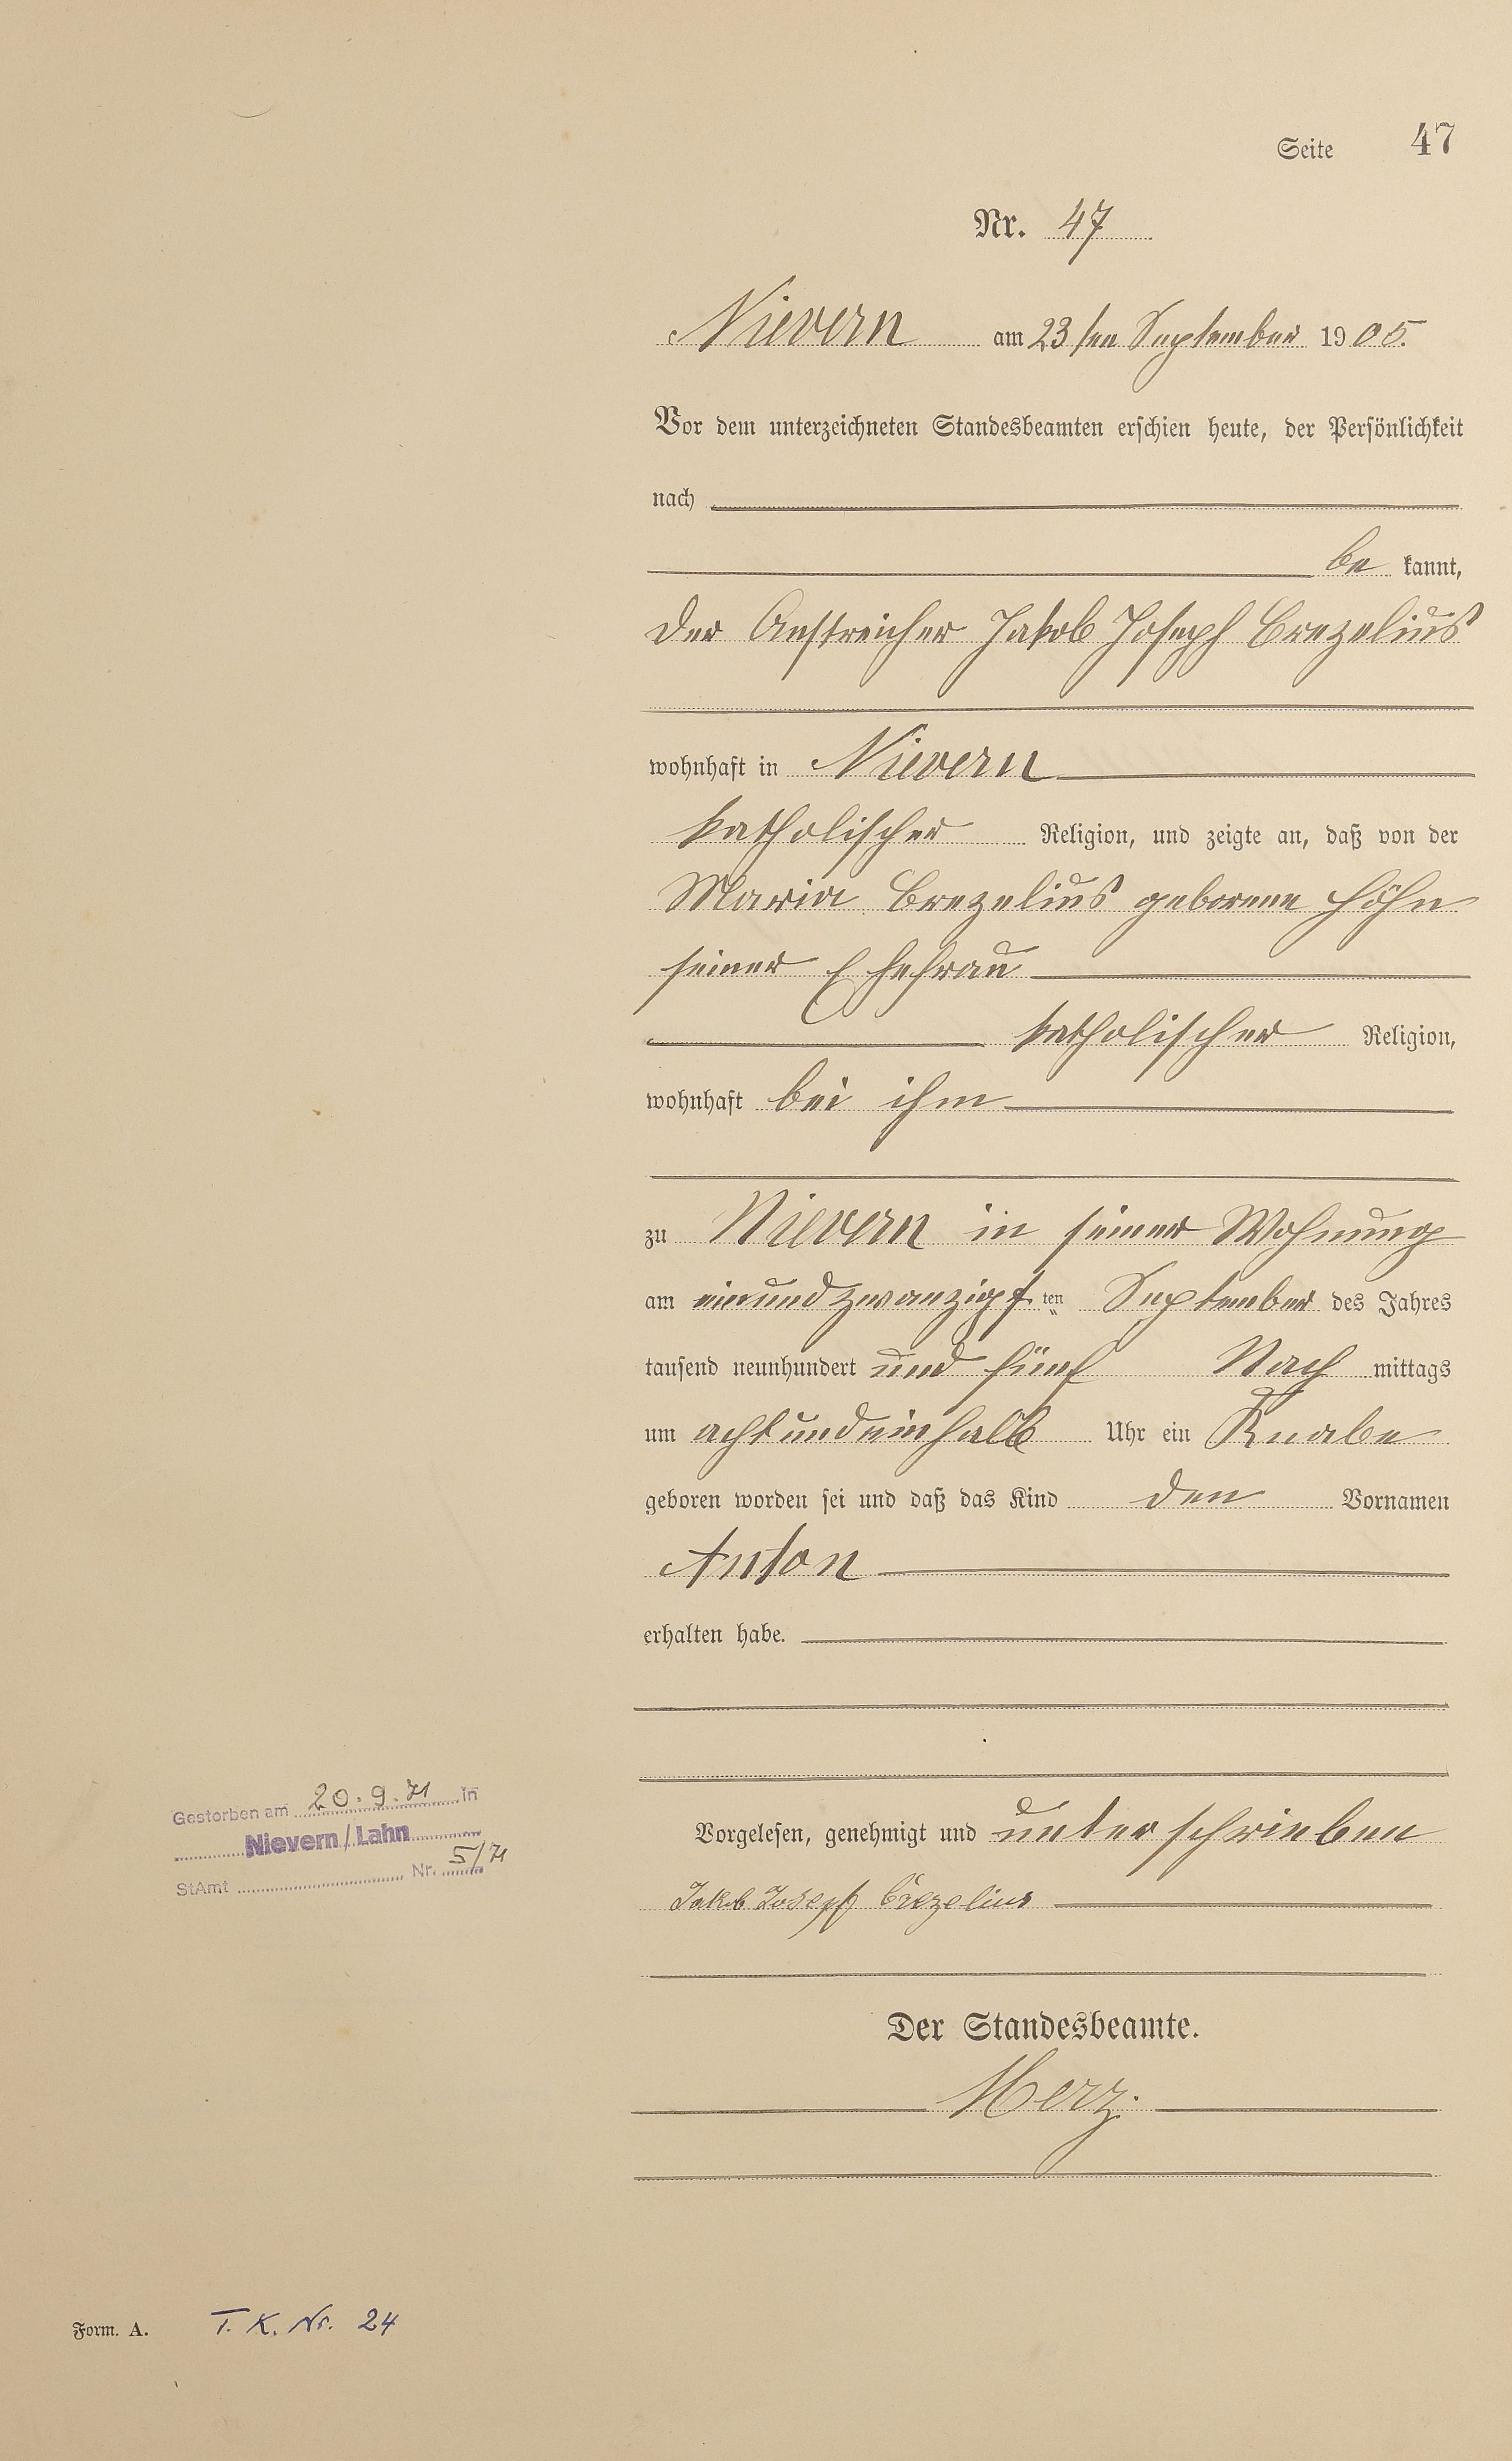 Seite 47
Nr. 47
Nievern am 23ten September 1905.
Vor dem unterzeichneten Standesbeamten erschien heute, der Persönlichkeit
nach
be kannt,
der Anstreicher Jakob Joseph Crezelius
wohnhaft in Nievern
katholischer Religion, und zeigte an, daß von der
Maria Crezelius geborene Höhn
seiner Ehefrau
katholischer Religion,
wohnhaft bei ihm
zu Nievern in seiner Wohnung
am einundzwanzigsten September des Jahres
tausend neunhundert und fünf Nach mittags
um acht und einhalb Uhr ein Knabe
geboren worden sei und daß das Kind den Vornamen
Anton
erhalten habe.
Gestorben am 20.9.71 in
Nievern/Lahn
StAmt Nr. 5/71
Vorgelesen, genehmigt und unterschrieben
Jakob Joseph Crezelius
Der Standesbeamte.
Merz.
Form. A. T. K. Nr. 24